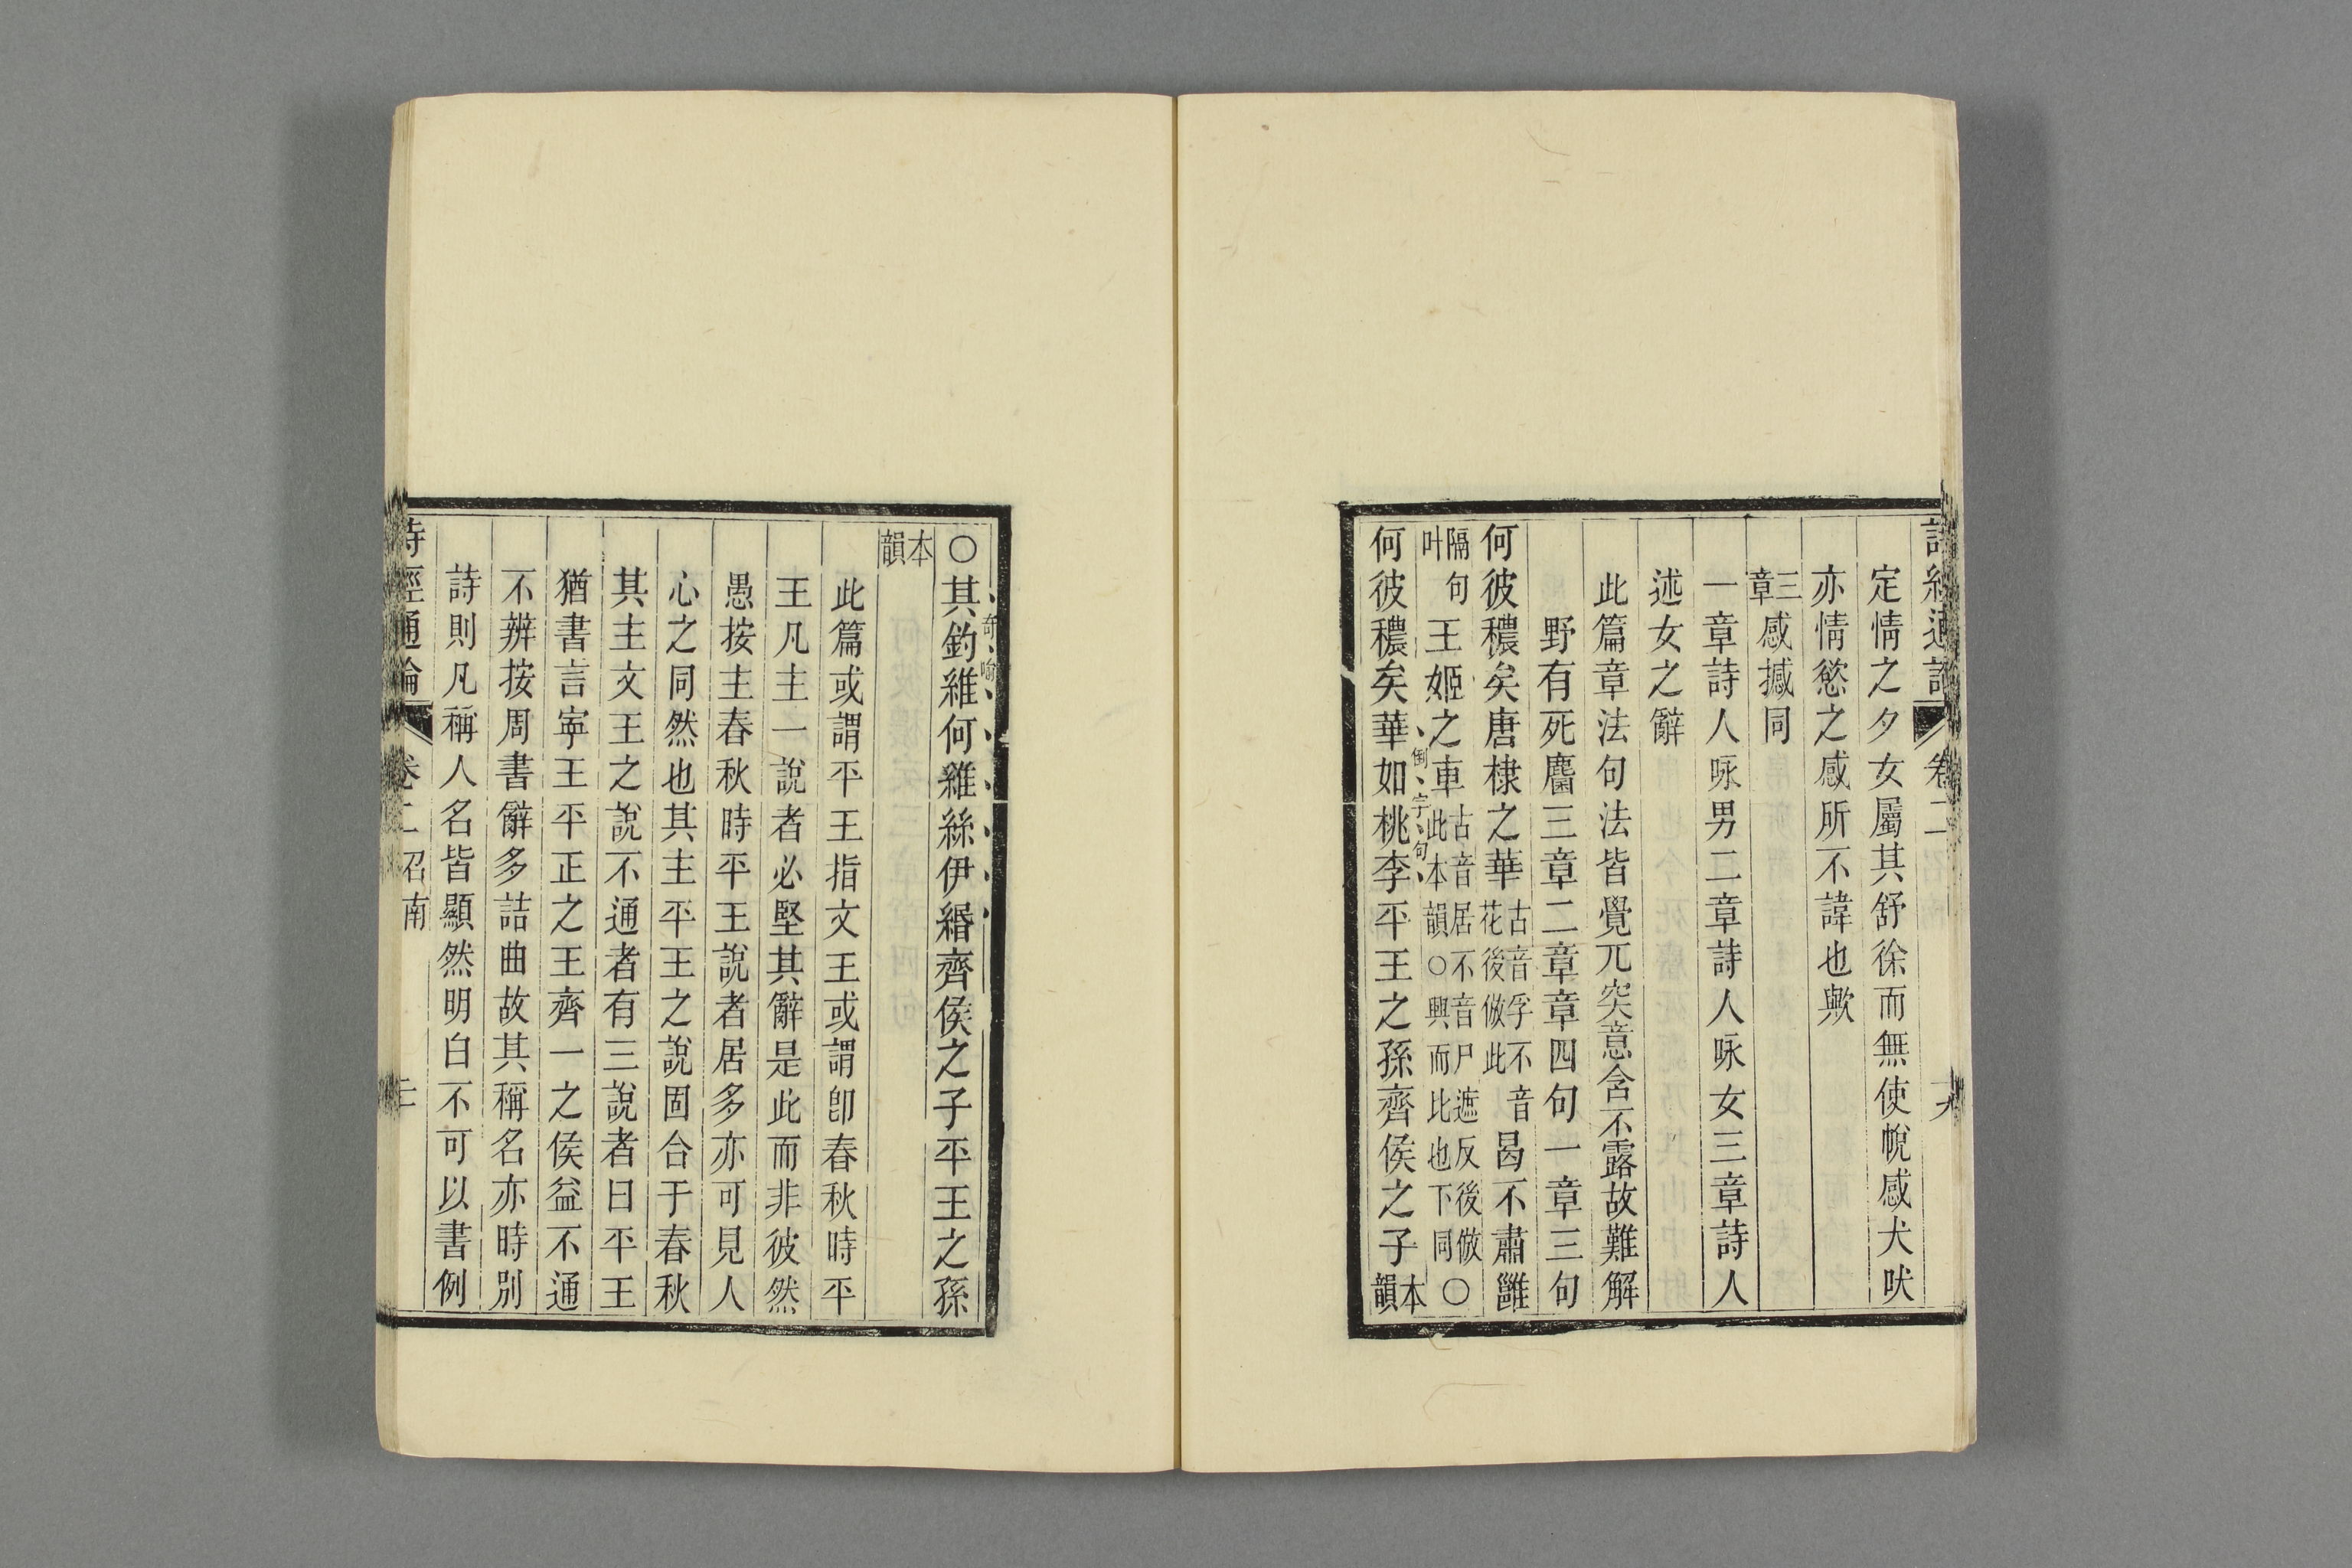 定情之夕女屬其舒徐而無使帨感犬吠
亦情慾之感所不諱也歟
三章感撼同
一章詩人咏男二章詩人咏女三章詩人
述女之辭
此篇章法句法皆覺兀突意含不露故難解
野有死麕三章二章章四句一章三句
何彼穠矣唐棣之華古音孚不音花後倣此曷不肅雝
隔句叶王姬之車古音居不音尸遮反後倣此本韻○興而比也下同○
何彼穠矣華如桃李平王之孫齊侯之子本韻
倒字句
○其釣維何維絲伊緡齊侯之子平王之孫
奇喻
本韻
此篇或謂平王指文王或謂卽春秋時平
王凡主一說者必堅其辭是此而非彼然
愚按主春秋時平王說者居多亦可見人
心之同然也其主平王之說固合于春秋
其主文王之說不通者有三說者曰平王
猶書言寧王平正之王齊一之侯益不通
不辨按周書辭多詰曲故其稱名亦時別
詩則凡稱人名皆顯然明白不可以書例
詩經通論 卷二 召南